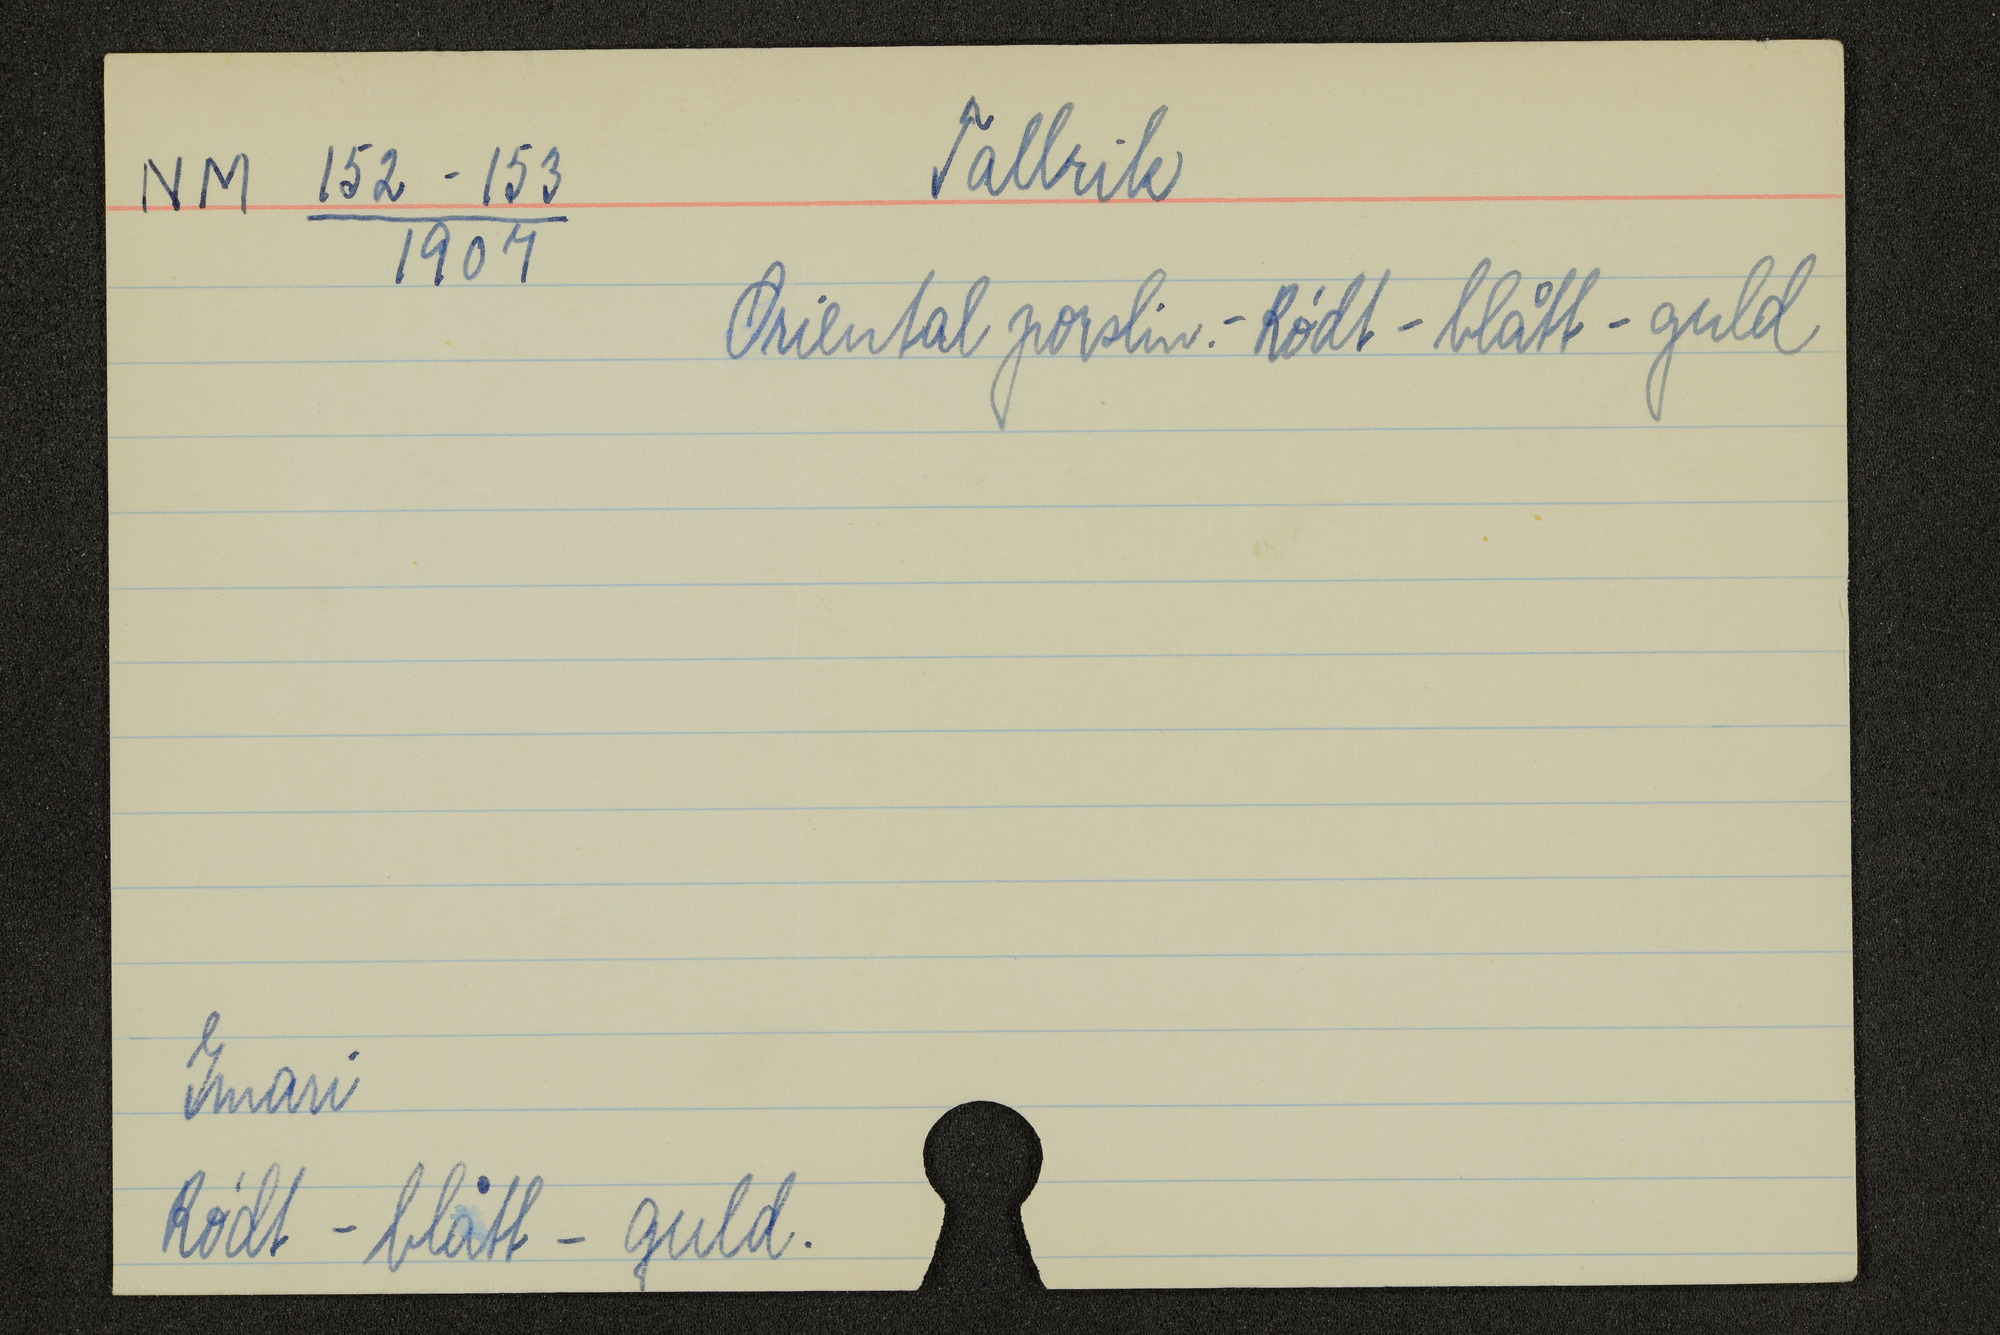 NM 152 - 153
1907
Tallrik
Oriental porslin. - Rödt - blått - guld
Imari
Rödt - blått - guld.